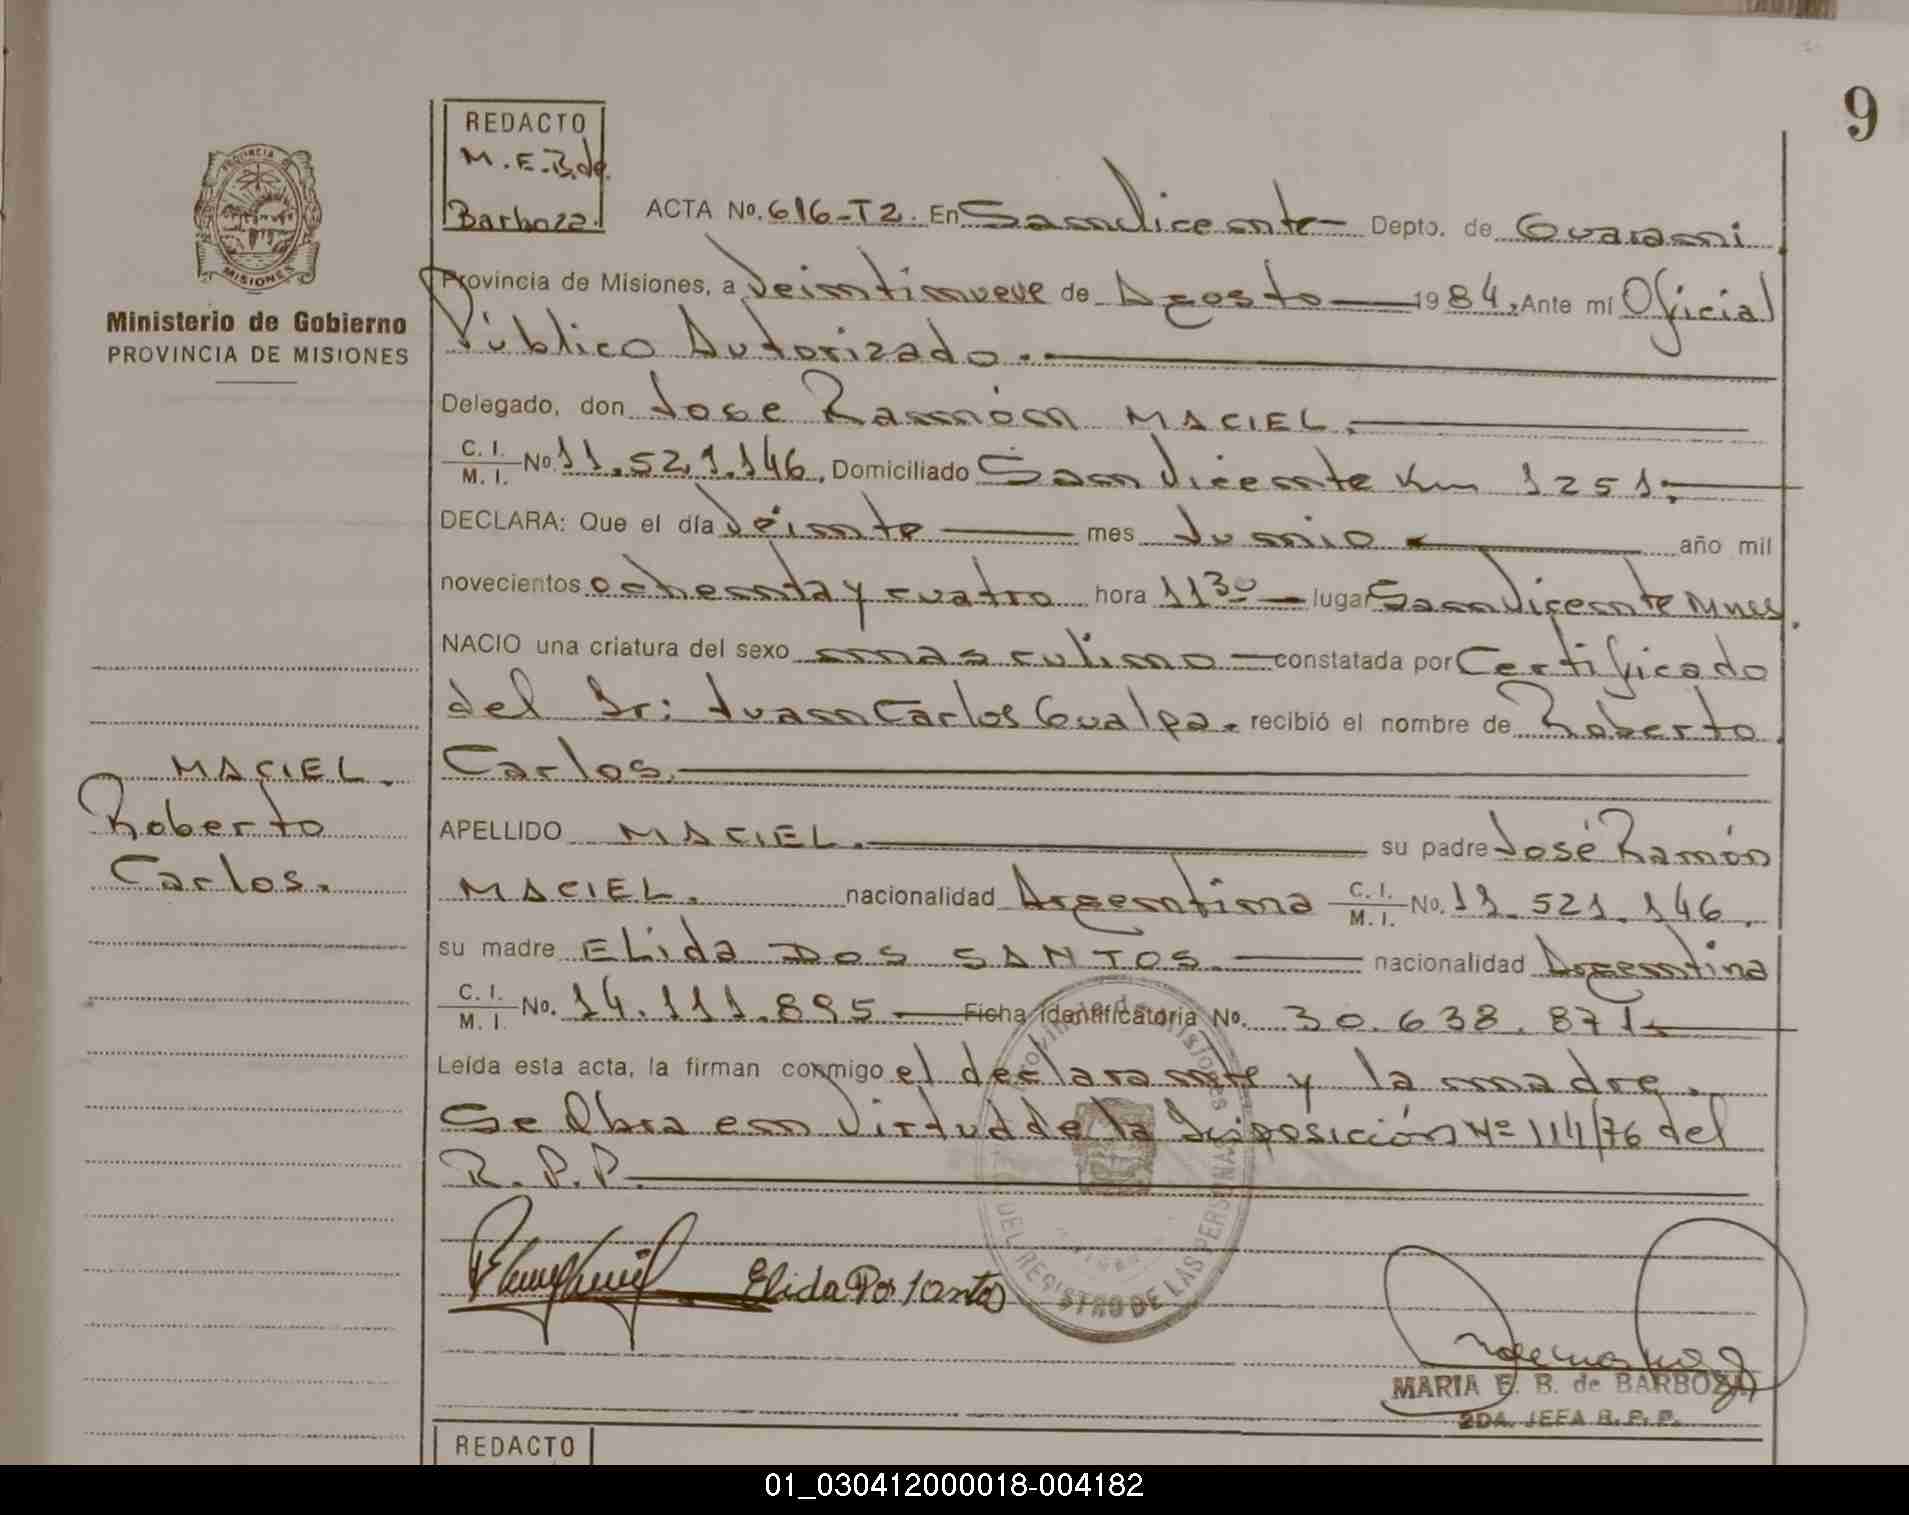 9
REDACTO
M.E.B. de
Barboza.
PROVINCIA DE
MISIONES
Ministerio de Gobierno
PROVINCIA DE MISIONES
ACTA No. 616-T2. En San Vicente Depto. de Guarani
Provincia de Misiones, a Veintinueve de Agosto 1984, Ante mí Oficial
Público Autorizado.
Delegado, don Jose Ramón MACIEL.
C. I. M. I. No. 11.521.146, Domiciliado San Vicente Km 1251.
DECLARA: Que el día Veinte mes Junio año mil
novecientos ochenta y cuatro hora 11 30 lugar San Vicente Mnes.
NACIO una criatura del sexo masculino constatada por Certificado
del Dr: Juan Carlos Gualpa. recibió el nombre de Roberto
Carlos.
MACIEL.
Roberto
Carlos.
APELLIDO MACIEL. su padre José Ramón
MACIEL. nacionalidad Argentina C. I. M. I. No. 11.521.146.
su madre ELida DOS SANTOS. nacionalidad Argentina
C. I. M. I. No. 14.111.895 Ficha identificatoria No. 30.638.871.
Leída esta acta, la firman conmigo el declarante y la madre.
Se Obra en Virtud de la Disposición Nº 114/76 del
R.P.P.
Elida Dos Santos
DEL REGISTRO DE LAS PERSONAS
MARIA E. B. de BARBOZA
2DA. JEFA R. P. P.
REDACTO
01_030412000018-004182